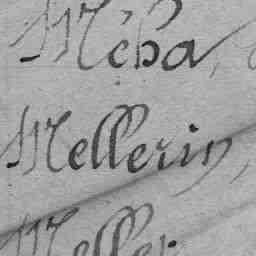 Méba,
Mellerin,
Meller